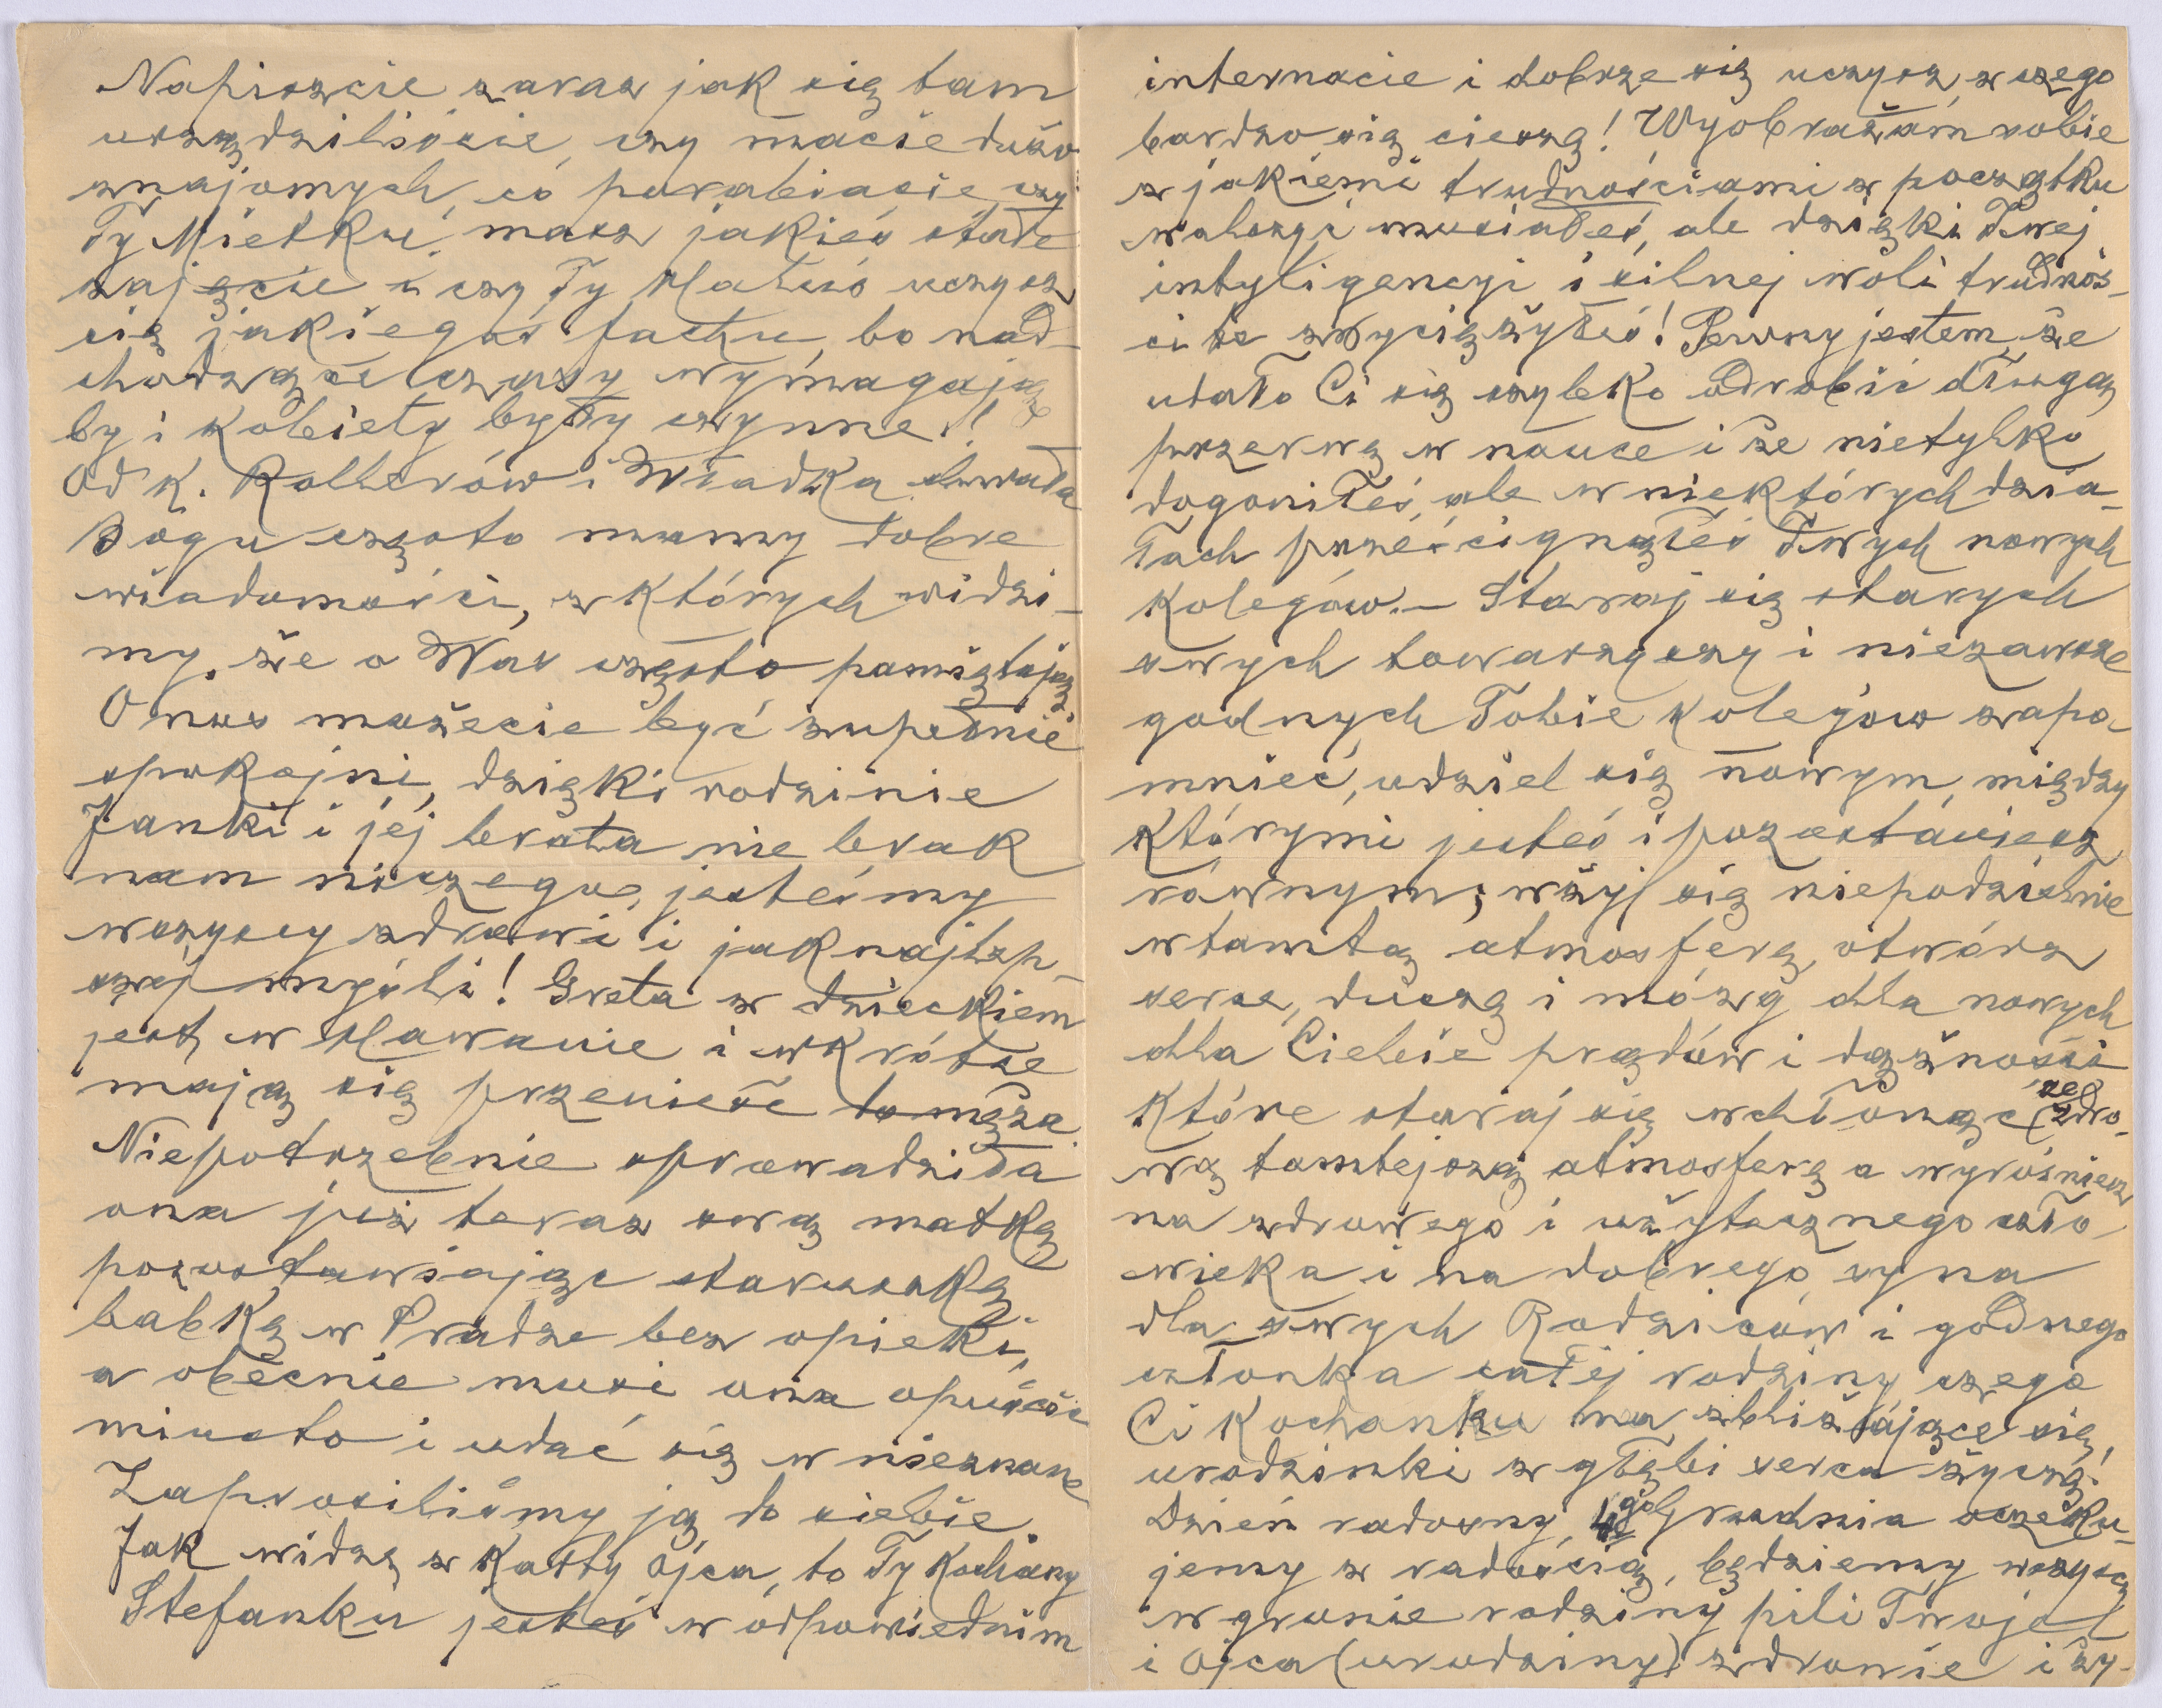 Napiszcie zaraz jak się tam
urządziliście, czy macie dużo
znajomych, co porabiacie, czy
Ty Mietku, masz jakieś stałe
zajęcie i czy Ty Haluś uczysz
się jakiegoś fachu, bo nad-
chodzące czasy wymagają
by i kobiety były czynne!!
Od K. Rollerów i Władka chwała
Bogu często mamy dobre
wiadomości, z których widzi-
my, że o Was często pamiętają
O nas możecie być zupełnie
spokojni, dzięki rodzinie
Janki i jej brata nie brak
nam niczego, jesteśmy
wszyscy zdrowi i jaknajlep-
szej myśli! Greta z dzieckiem
jest w Hawanie i wkrótce
mają się przenieść to męża.
Niepotrzebnie sprowadziła
ona już teraz swą matkę
pozostawiając staruszkę
babkę w Pradze bez opieki,
a obecnie musi ona opuścić
miasto i udać się w nieznane
Zaprosiliśmy ją do siebie.
Jak widzę z Kartty Ojca, to Ty Kochany
Stefanku jesteś w odpowiednim
internacie i dobrze się uczysz, z czego
bardzo się cieszę! Wyobrażam sobie
z jakiemi trudnościami z początku
walczyć musiałeś, ale dzięki Twej
intyligencyi i silnej woli trudnoś-
ci te zwyciężyłeś! Pewny jestem, że
udało Ci się szybko odrobić długą
przerwę w nauce i że nietylko
dogoniłeś, ale w niektórych dzia-
łach prześcignąłeś Twych nowych
kolegów. – Staraj się starych
swych towarzyszy i niezawsze
godnych Tobie kolegów zapo-
mnieć, udziel się nowym, między
którymi jesteś i pozostaniesz
równym; wżyj się niepodzielnie
w tamtą atmosferę, otwórz
serce, duszę i mózg dla nowych
dla Ciebie prądów i dążności
które staraj się wchłonąć ze zdro-
wą tamtejszą atmosferą a wyrośniesz
na zdrowego i użytecznego czło-
wieka i na dobrego syna
dla swych Rodziców i godnego
członka całej rodziny czego
Ci Kochanku na zbliżające się
urodzinki z głębi serca życzę!
Dzień radosny, go Grudnia oczeku-
jemy z radością, będziemy wszyscy
w gronie rodziny pili Twoje
i Ojca (urodziny) zdrowie i ży-